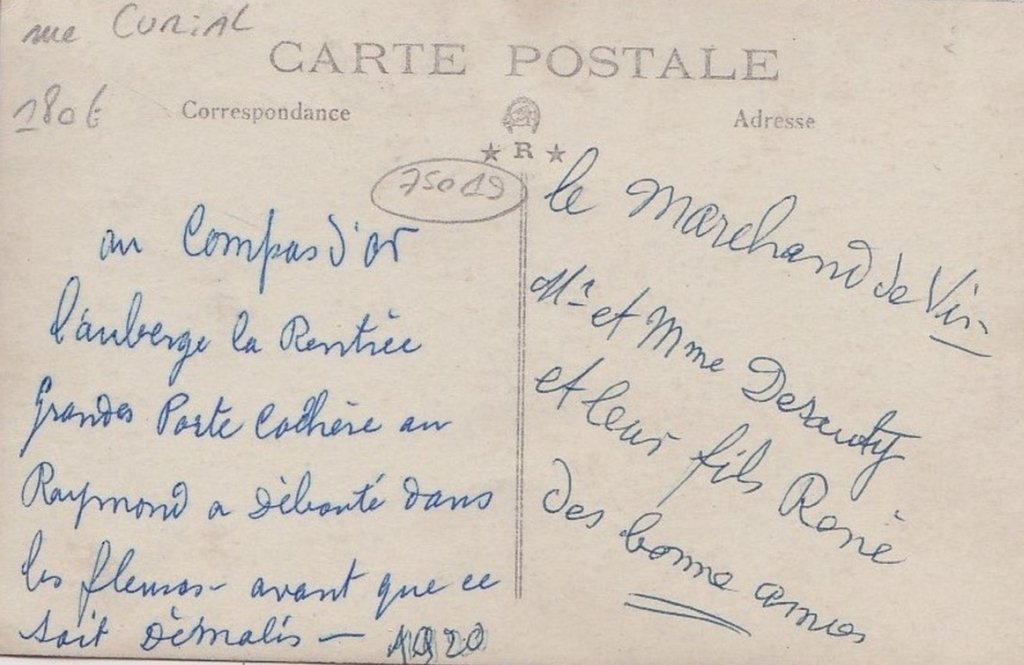 rue CURIAL
CARTE POSTALE
180€
Correspondance
Adresse
★ R ★
75019
au Compas d'or
l'auberge la Rentrée
Grandes Porte Cochère au
Raymond a débouté dans
les fleuros - avant que ce
soit démolis - 1920
le Marchand de Vin -
Mr et Mme Desauty
et leur fils René
des bonne amies